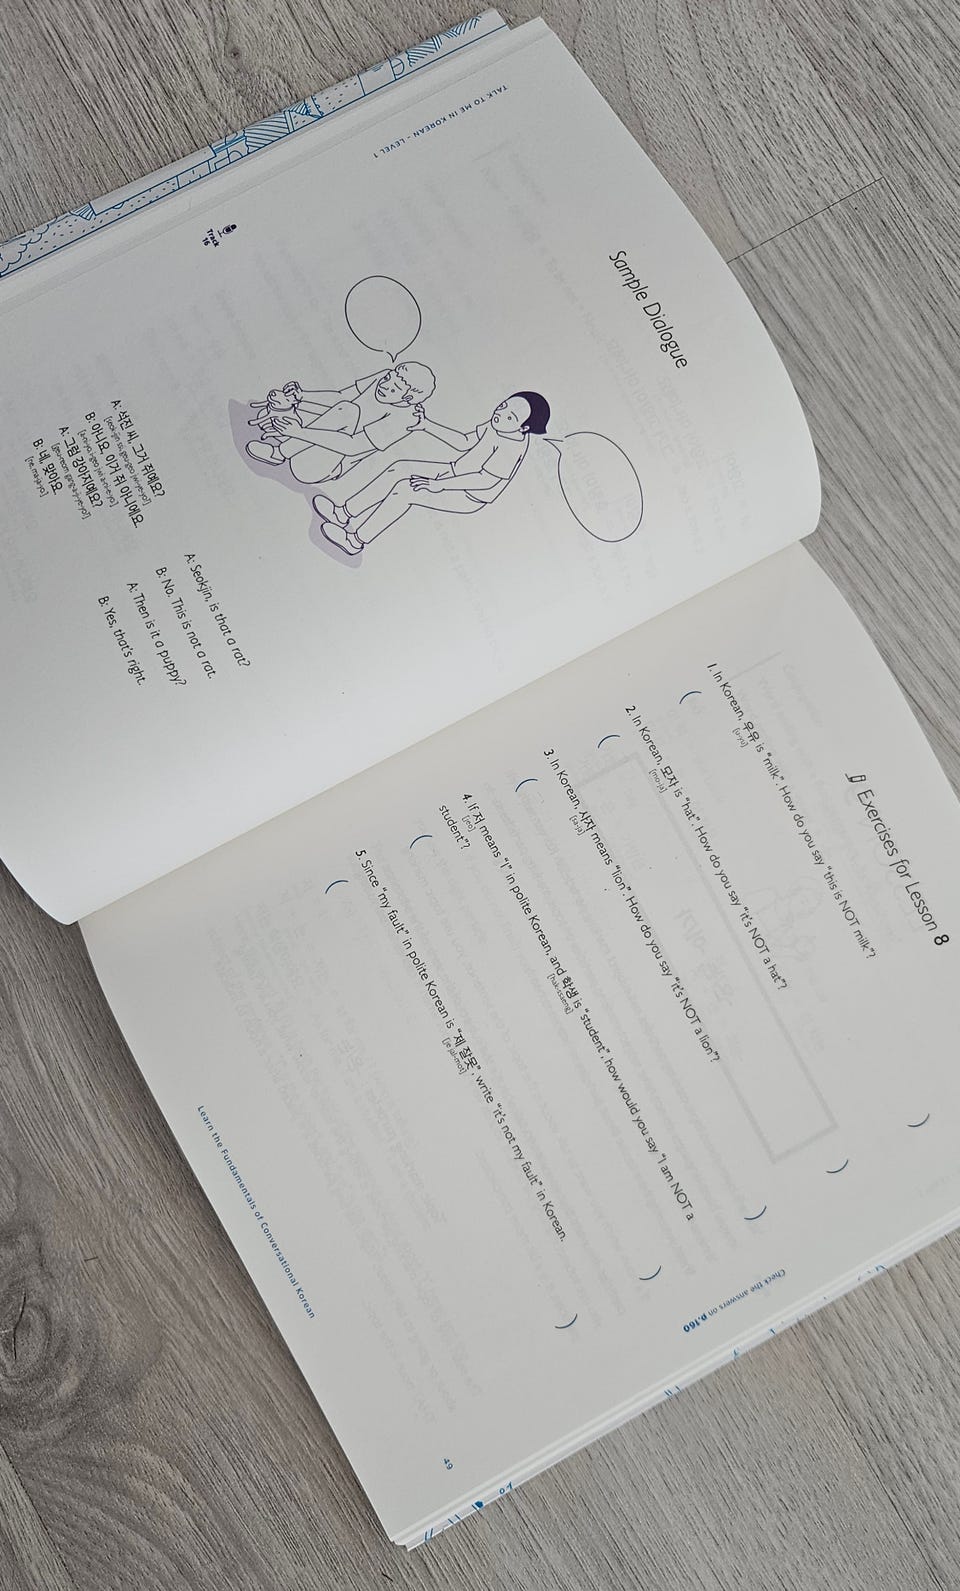 TALK TO ME IN KOREAN - LEVEL 1
Sample Dialogue
Track
16
A: 석진 씨, 그거 쥐예요?
[seok-jin ssi, geu-geo jwi-ye-yo?]
B: 아니요. 이거 쥐 아니에요.
[a-ni-yo. i-geo jwi a-ni-e-yo.]
A: 그럼 강아지예요?
[geu-reom gang-a-ji-ye-yo?]
B: 네, 맞아요.
[ne, ma-ja-yo.]
A: Seokjin, is that a rat?
B: No. This is not a rat.
A: Then is it a puppy?
B: Yes, that's right.
Exercises for Lesson 8
1. In Korean, 우유 is "milk". How do you say "this is NOT milk"?
[u-yu]
( )
2. In Korean, 모자 is "hat". How do you say "it's NOT a hat"?
[mo-ja]
( )
3. In Korean, 사자 means "lion". How do you say "it's NOT a lion"?
[sa-ja]
( )
4. If 저 means "I" in polite Korean, and 학생 is "student", how would you say "I am NOT a
[jeo] [hak-ssaeng]
student"?
( )
5. Since "my fault" in polite Korean is "제 잘못", write "it's not my fault" in Korean.
[je jal-mot]
( )
Check the answers on p.160
Learn the Fundamentals of Conversational Korean
49